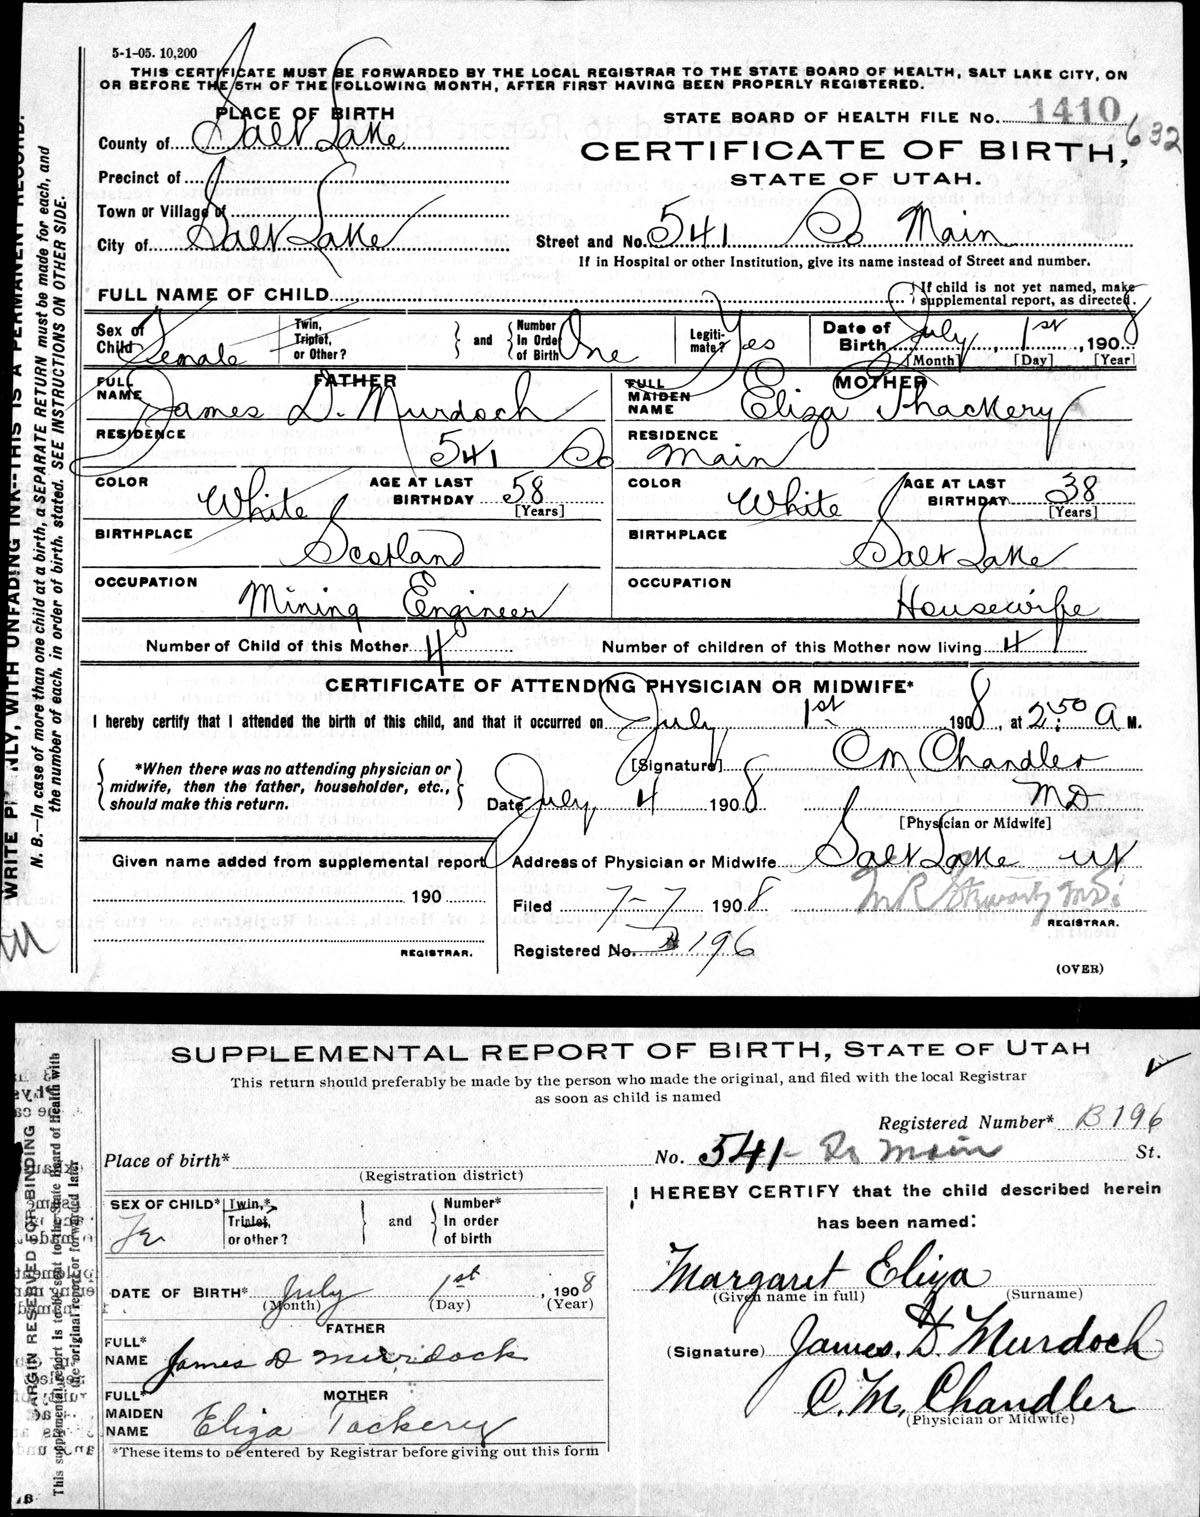 5-1-05. 10,200
THIS CERTIFICATE MUST BE FORWARDED BY THE LOCAL REGISTRAR TO THE STATE BOARD OF HEALTH, SALT LAKE CITY, ON
OR BEFORE THE 5TH OF THE FOLLOWING MONTH, AFTER FIRST HAVING BEEN PROPERLY REGISTERED.
PLACE OF BIRTH
STATE BOARD OF HEALTH FILE No. 1410 632
County of Salt Lake
CERTIFICATE OF BIRTH,
STATE OF UTAH.
Precinct of
Town or Village of
City of Salt Lake
Street and No. 541 So Main
If in Hospital or other Institution, give its name instead of Street and number.
FULL NAME OF CHILD
If child is not yet named, make supplemental report, as directed.
Sex of Child Female
Twin, Triplet, or Other?
and
Number In Order of Birth One
Legiti-mate? Yes
Date of Birth July, 1st, 1908
[Month] [Day] [Year]
FATHER
FULL NAME James D. Murdoch
MOTHER
FULL MAIDEN NAME Eliza Thackery
RESIDENCE 541 So
RESIDENCE Main
COLOR White
AGE AT LAST BIRTHDAY 58 [Years]
COLOR White
AGE AT LAST BIRTHDAY 38 [Years]
BIRTHPLACE Scotland
BIRTHPLACE Salt Lake
OCCUPATION Mining Engineer
OCCUPATION Housewife
Number of Child of this Mother 4
Number of children of this Mother now living 4
CERTIFICATE OF ATTENDING PHYSICIAN OR MIDWIFE*
I hereby certify that I attended the birth of this child, and that it occurred on July 1st 1908, at 2:50 A M.
*When there was no attending physician or midwife, then the father, householder, etc., should make this return.
[Signature] CM Chandler
MD
Date July 4 1908
[Physician or Midwife]
Given name added from supplemental report
190
REGISTRAR.
Address of Physician or Midwife Salt Lake Ut
Filed 7-7 1908
REGISTRAR.
Registered No. B196
(OVER)
WRITE PLAINLY, WITH UNFADING INK--THIS IS A PERMANENT RECORD.
N. B.—In case of more than one child at a birth, a SEPARATE RETURN must be made for each, and
the number of each, in order of birth, stated. SEE INSTRUCTIONS ON OTHER SIDE.
SUPPLEMENTAL REPORT OF BIRTH, STATE OF UTAH
This return should preferably be made by the person who made the original, and filed with the local Registrar
as soon as child is named
Registered Number* B196
Place of birth*
(Registration district)
No. 541- So Main St.
SEX OF CHILD* Fe
Twin,* Triplet, or other?
and
Number* In order of birth
I HEREBY CERTIFY that the child described herein
has been named:
Margaret Eliza
(Given name in full) (Surname)
DATE OF BIRTH* July 1st, 1908
(Month) (Day) (Year)
FATHER
FULL* NAME James D Murdock
(Signature) James. D. Murdoch
MOTHER
FULL* MAIDEN NAME Eliza Tackery
C. M. Chandler
(Physician or Midwife)
*These items to be entered by Registrar before giving out this form
MARGIN RESERVED FOR BINDING
This supplemental report is to be sent to the State Board of Health with
the original report or forwarded later